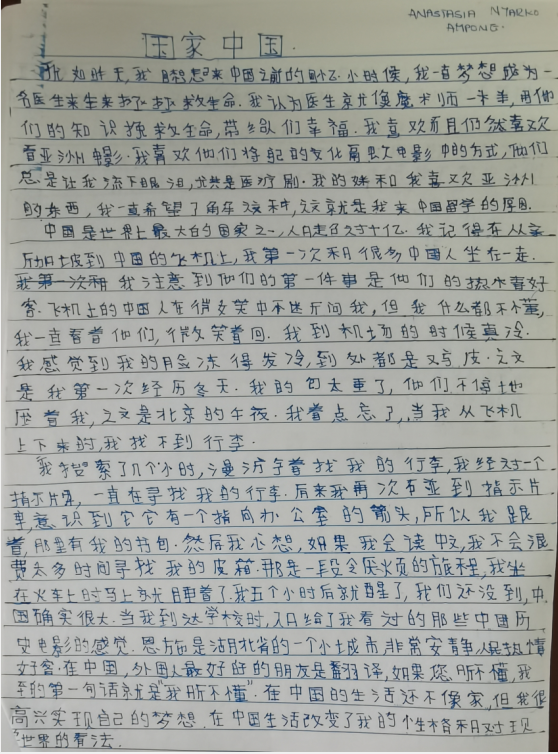 ANASTASIA NYARKO
AMPONG.
国家中国.
犹如昨天,我想起来中国之前的回忆.小时候,我一直梦想成为一
名医生来生来拯救生命.我认为医生就像魔术师一样,用他
们的知识拯救生命,带给人们幸福.我喜欢而且仍然喜欢
看亚洲电影.我喜欢他们将自己的文化融入电影中的方式,他们
总是让我流下眼泪,尤其是医疗剧.我的妹和我喜欢亚洲
的东西,我一直希望了解这种,这就是我来中国留学的原因.
中国是世界上最大的国家之一,人口超过十亿.我记得在从家
历加坡到中国的飞机上,我第一次和很多中国人坐在一走.
我第一次和我注意到他们的第一件事是他们的热水喜好
客.飞机上的中国人在微笑中不迷历问我,但我什么都不懂,
我一直看着他们,微笑着回.我到机场的时候真冷.
我感觉到我的脸冻得发冷,到处都是雪皮.这
是我第一次经历冬天.我的包太重了,他们不停地
压着我,这是北京的午夜.我着点忘了,当我从飞机
上下来时,我找不到行李.
我搜索了几个小时,漫游争着找我的行李,我经过一个
指示片牌,一直在寻找我的行李.后来我再次看到指示片
牌,意识到它它有一个指向办公室的箭头,所以我跟
着,那里有我的书包.然后我心想,如果我会读中文,我不会浪
费太多时间寻找我的皮箱.那是一段令人烦的旅程,我坐
在火车上时马上就睡着了.我五个小时后就醒了,我们还没到,中
国确实很大.当我到达学校时,入口给了我看过的那些中国历
史电影的感觉.恩施是湖北省的一个小城市,非常安静人民热情
好客.在中国,外国人最好的的朋友是翻译,如果您听不懂,我
学的第一句话就是"我听不懂".在中国的生活还不像家,但我很
高兴实现自己的梦想.在中国生活改变了我的个性格和对现
世界的看法.